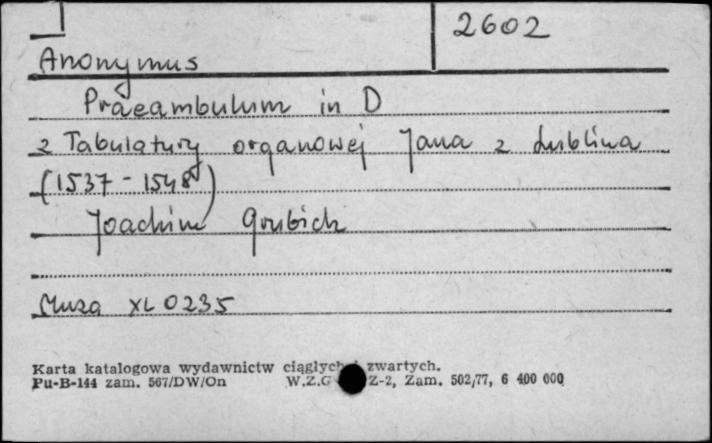 2602
Anonymus
Praeambulum in D
z Tabulatury organowej Jana z Lublina
(1537-1548)
Joachim Grubich
Muza XL 0235
Karta katalogowa wydawnictw ciągłych i zwartych.
Pu-B-144 zam. 567/DW/On W.Z.G Z-2, Zam. 502/77, 6 400 000